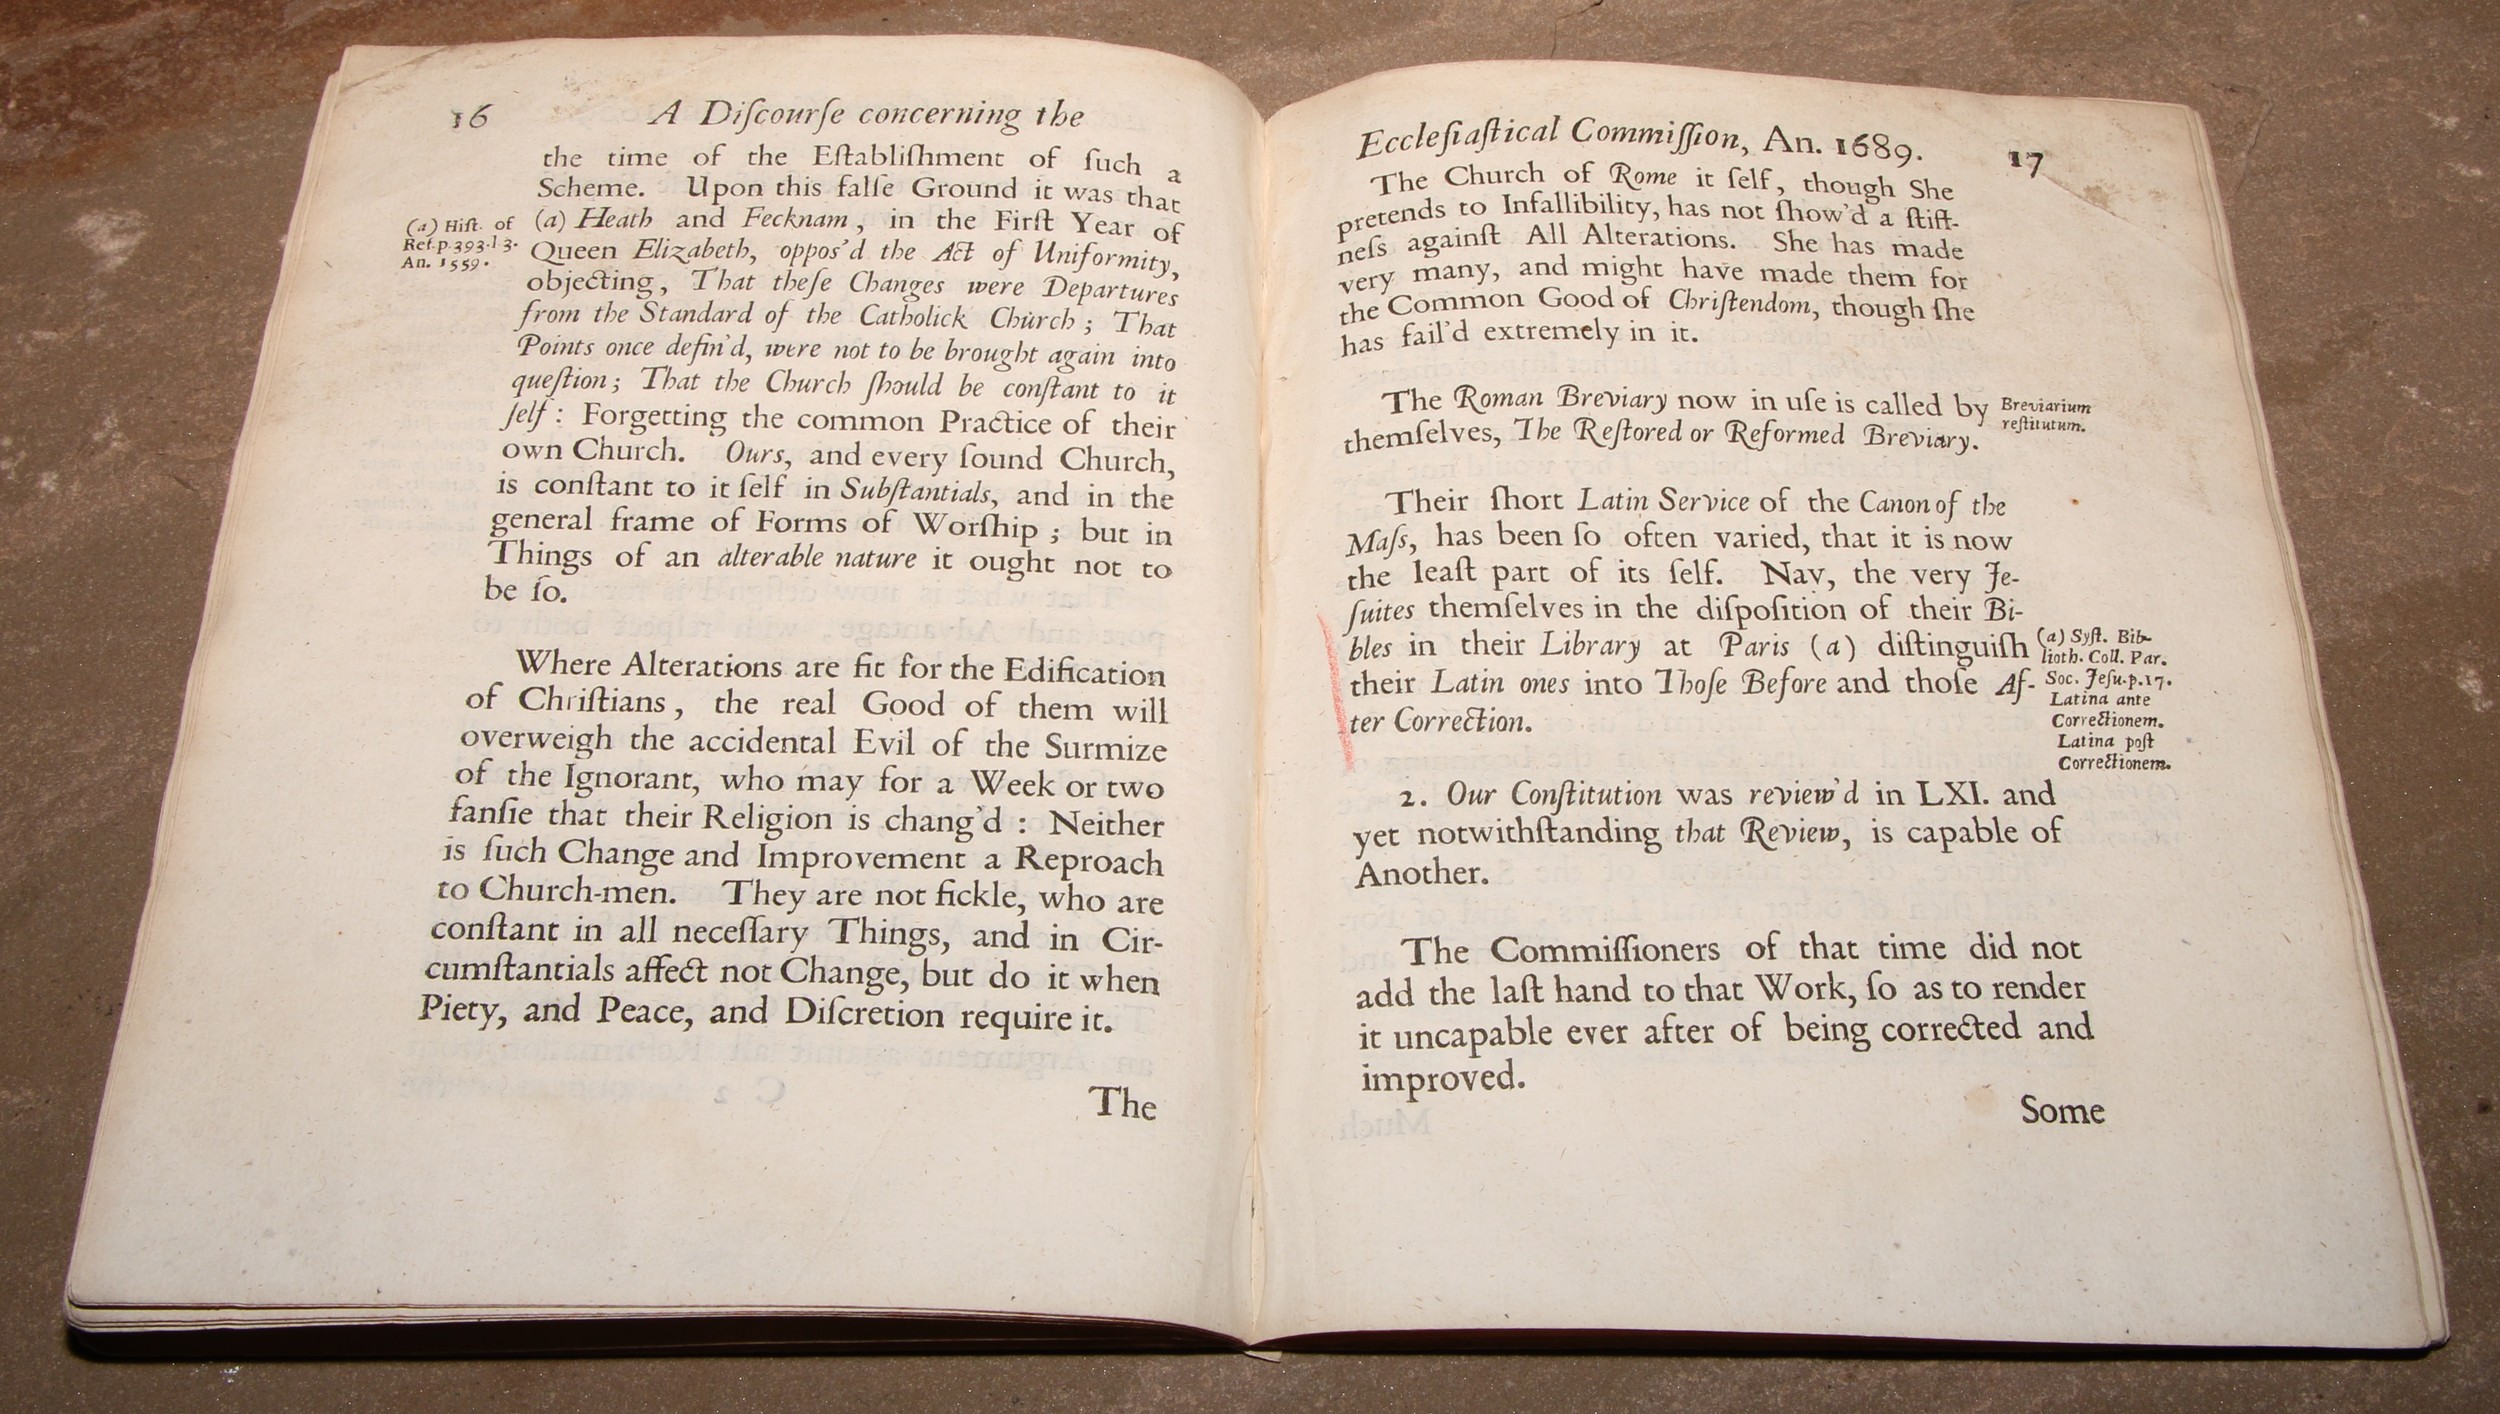 16
A Diſcourſe concerning the
the time of the Eſtabliſhment of ſuch a
Scheme. Upon this falſe Ground it was that
(a) Heath and Fecknam, in the Firſt Year of
Queen Elizabeth, oppos'd the Act of Uniformity,
objecting, That theſe Changes were Departures
from the Standard of the Catholick Church; That
Points once defin'd, were not to be brought again into
queſtion; That the Church ſhould be conſtant to it
ſelf: Forgetting the common Practice of their
own Church. Ours, and every ſound Church,
is conſtant to it ſelf in Subſtantials, and in the
general frame of Forms of Worſhip; but in
Things of an alterable nature it ought not to
be ſo.
(a) Hiſt. of
Ref. p. 393. l. 3.
An. 1559.
Where Alterations are fit for the Edification
of Chriſtians, the real Good of them will
overweigh the accidental Evil of the Surmize
of the Ignorant, who may for a Week or two
fanſie that their Religion is chang'd: Neither
is ſuch Change and Improvement a Reproach
to Church-men. They are not fickle, who are
conſtant in all neceſſary Things, and in Cir-
cumſtantials affect not Change, but do it when
Piety, and Peace, and Diſcretion require it.
The
Eccleſiaſtical Commiſſion, An. 1689.
17
The Church of Rome it ſelf, though She
pretends to Infallibility, has not ſhow'd a ſtiff-
neſs againſt All Alterations. She has made
very many, and might have made them for
the Common Good of Chriſtendom, though ſhe
has fail'd extremely in it.
The Roman Breviary now in uſe is called by
themſelves, The Reſtored or Reformed Breviary.
Breviarium
reſtitutum.
Their ſhort Latin Service of the Canon of the
Maſs, has been ſo often varied, that it is now
the leaſt part of its ſelf. Nay, the very Je-
ſuites themſelves in the diſpoſition of their Bi-
bles in their Library at Paris (a) diſtinguiſh
their Latin ones into Thoſe Before and thoſe Af-
ter Correction.
(a) Syſt. Bib-
lioth. Coll. Par.
Soc. Jeſu. p. 17.
Latina ante
Correctionem.
Latina poſt
Correctionem.
2. Our Conſtitution was review'd in LXI. and
yet notwithſtanding that Review, is capable of
Another.
The Commiſſioners of that time did not
add the laſt hand to that Work, ſo as to render
it uncapable ever after of being corrected and
improved.
Some